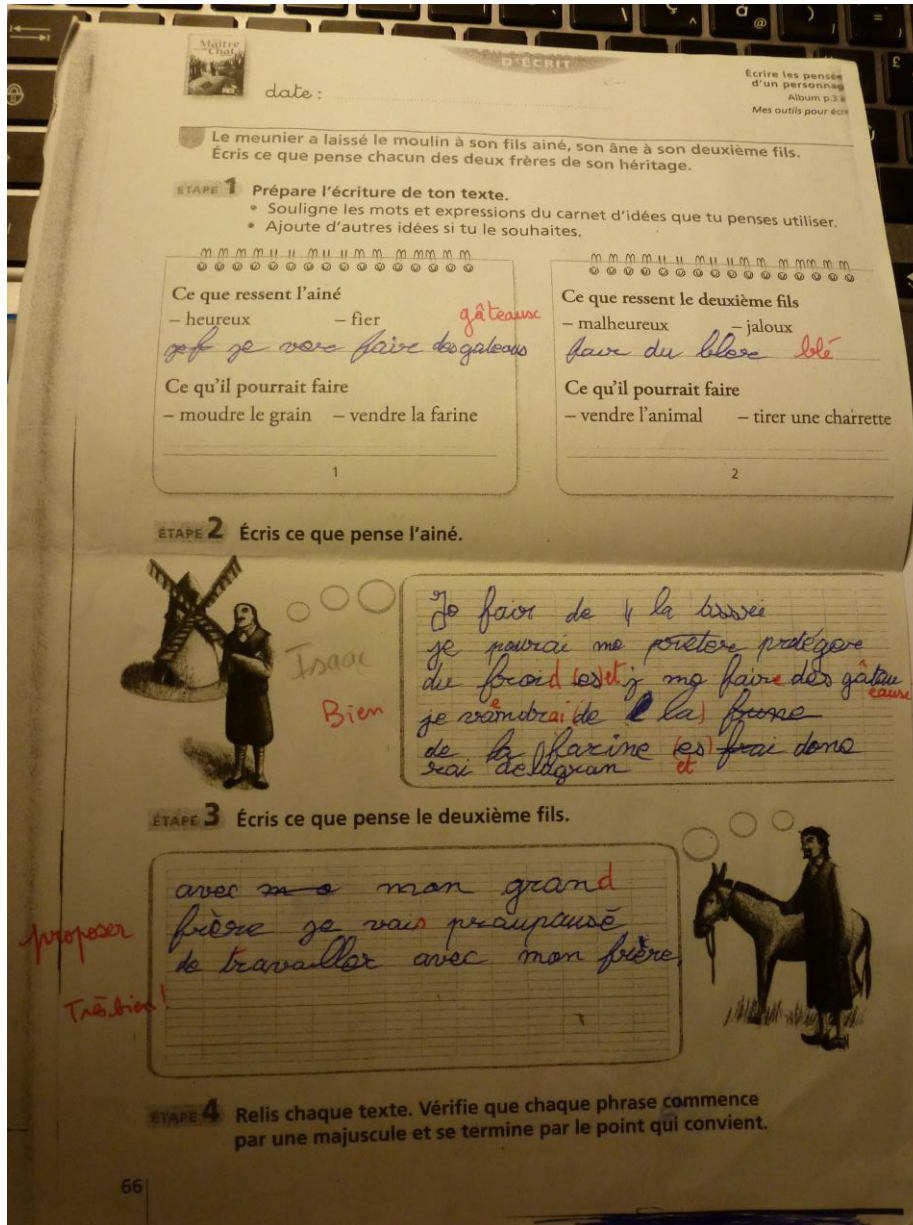 Maître
Chat
D'ÉCRIT
date :
Écrire les pensée
d'un personnag
Album p.3
Mes outils pour écri
Le meunier a laissé le moulin à son fils ainé, son âne à son deuxième fils.
Écris ce que pense chacun des deux frères de son héritage.
ÉTAPE 1 Prépare l'écriture de ton texte.
• Souligne les mots et expressions du carnet d'idées que tu penses utiliser.
• Ajoute d'autres idées si tu le souhaites.
Ce que ressent l'ainé
– heureux – fier gâteaux
je vere faire des gateaus
Ce qu'il pourrait faire
– moudre le grain – vendre la farine
1
Ce que ressent le deuxième fils
– malheureux – jaloux
du blé
Ce qu'il pourrait faire
– vendre l'animal – tirer une charrette
2
ÉTAPE 2 Écris ce que pense l'ainé.
Isaac
Bien
de la
je pourai me protéger
du froid (es) et j me faire des gâteau eaux
je vendrai (de la)
de la farine (es) et donc
ÉTAPE 3 Écris ce que pense le deuxième fils.
avec mon grand
proposer frère je vais praupausé
de travailler avec mon frère
Très bien !
ÉTAPE 4 Relis chaque texte. Vérifie que chaque phrase commence
par une majuscule et se termine par le point qui convient.
66